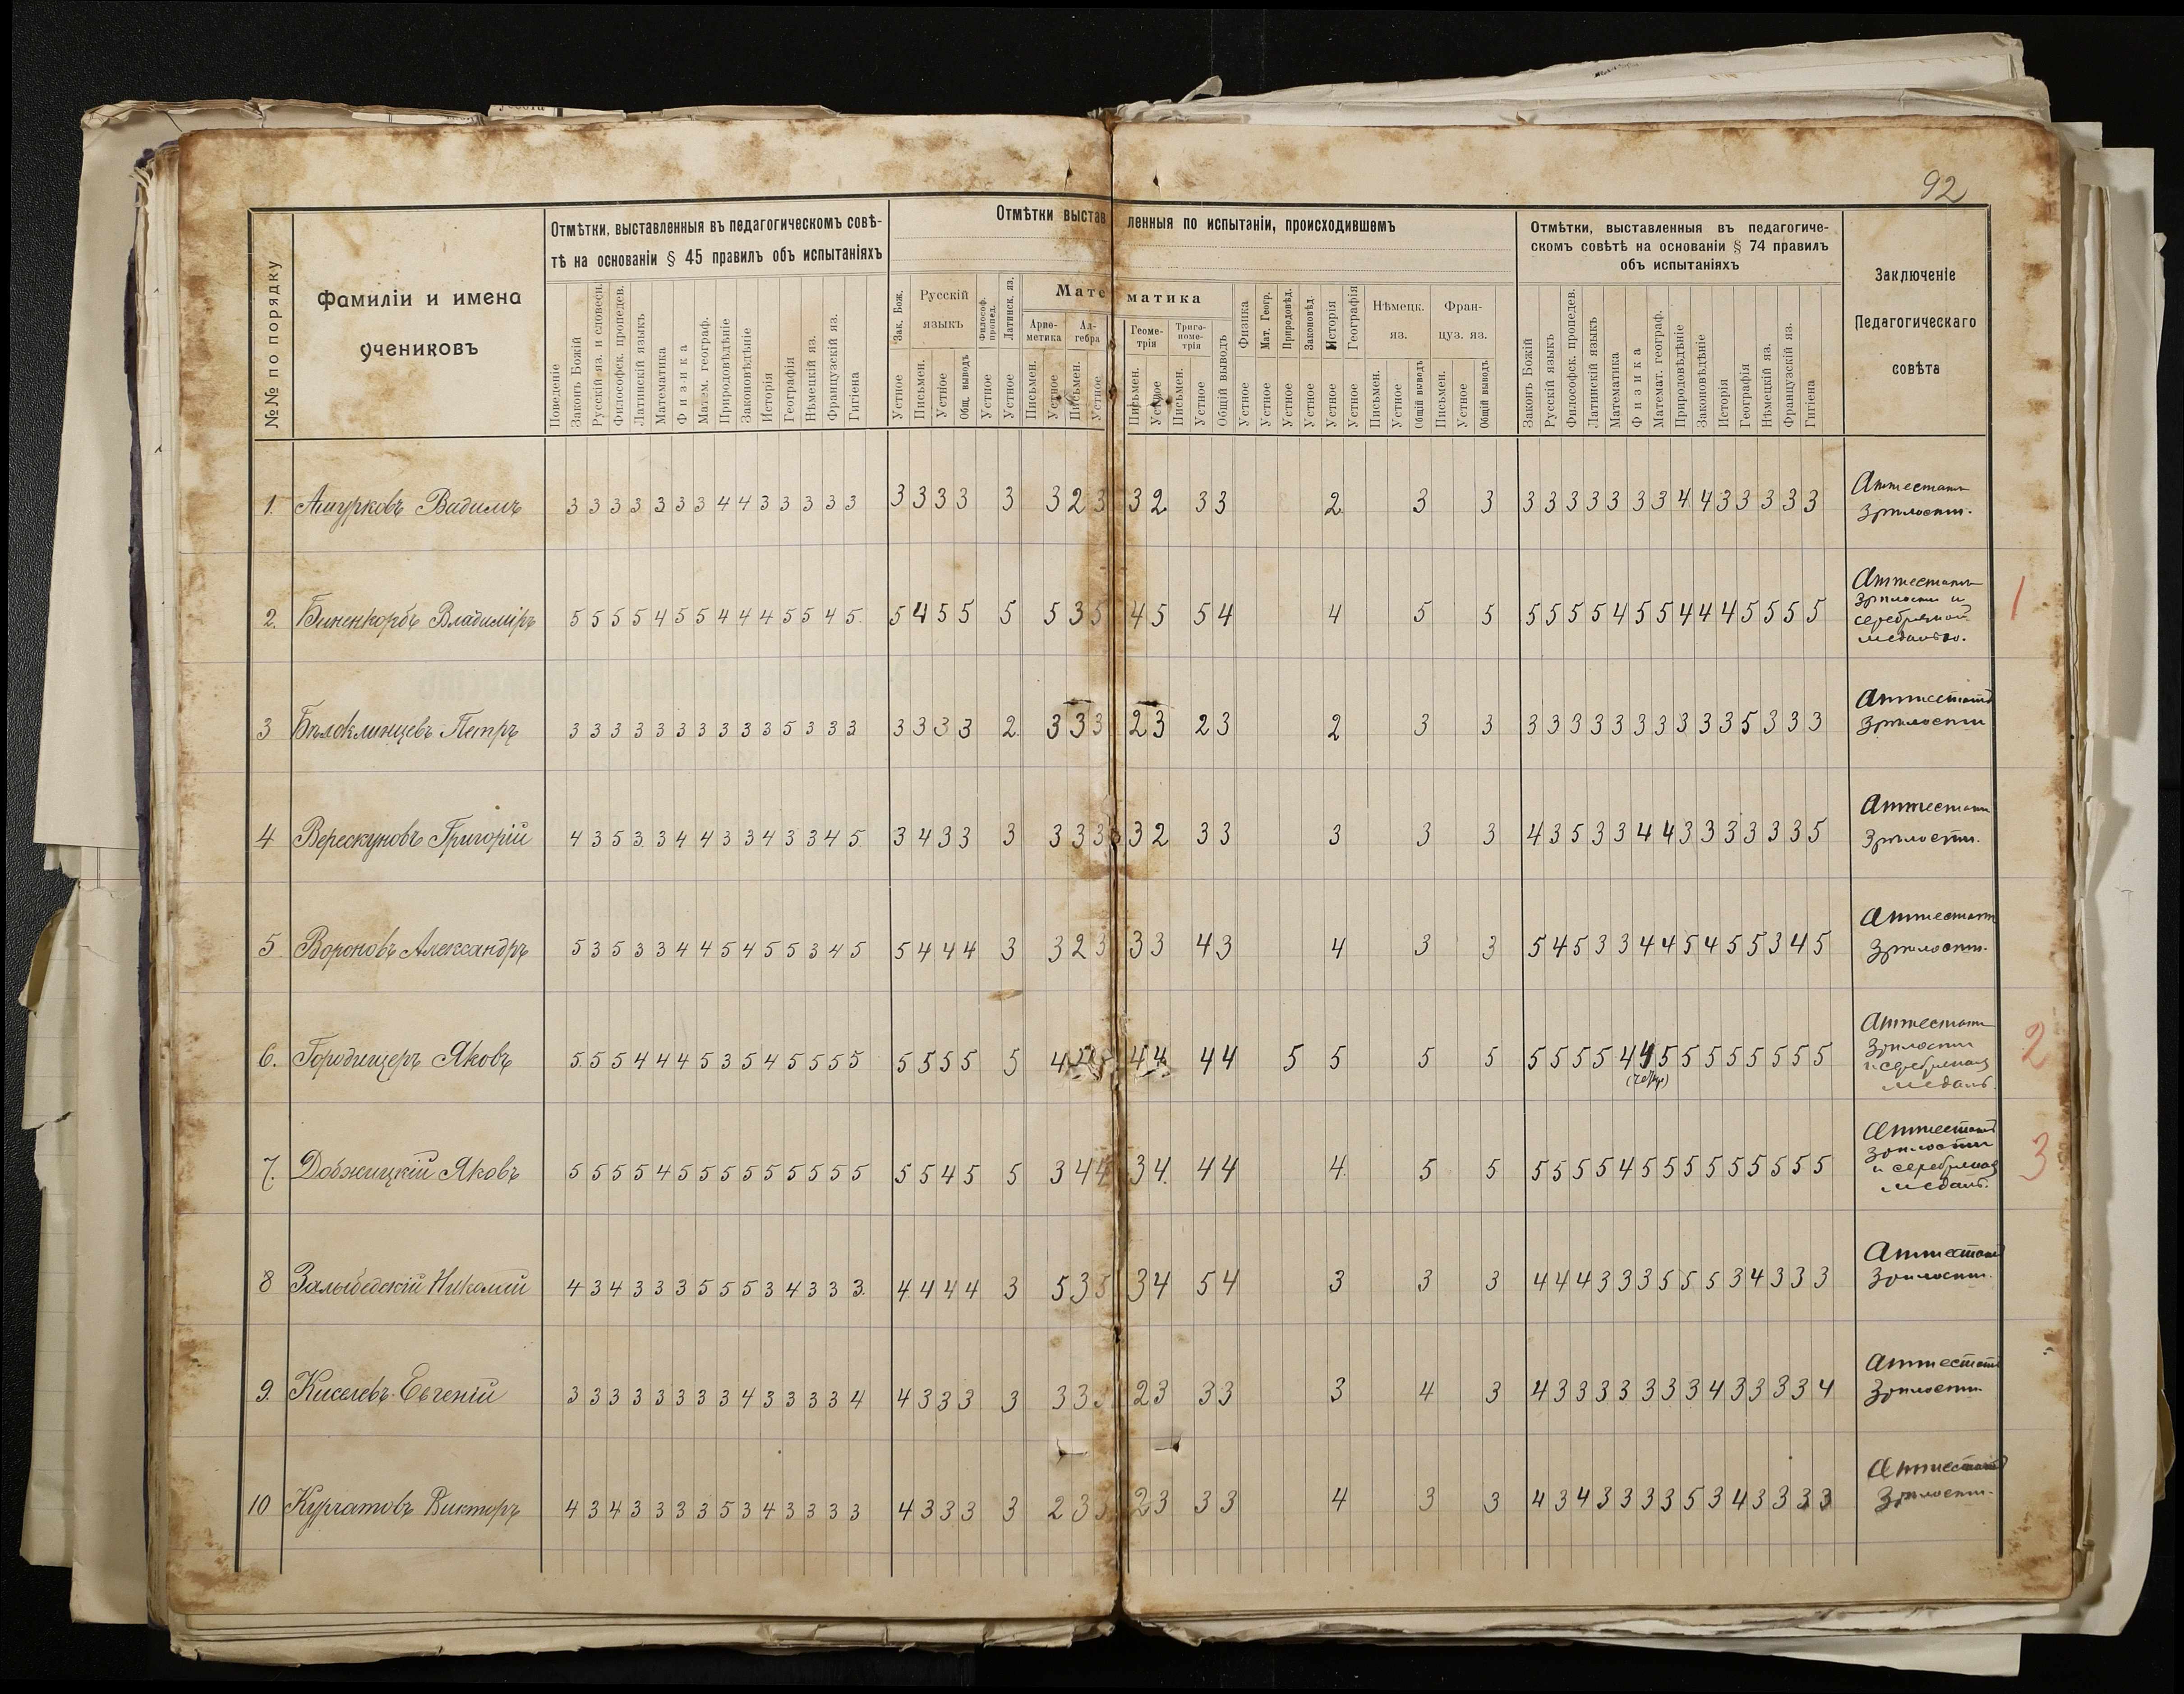 92
Отмѣтки, выставленныя въ педагогическомъ совѣ-
тѣ на основаніи § 45 правилъ объ испытаніяхъ
Отмѣтки выставленныя по испытаніи, происходившемъ
Отмѣтки, выставленныя въ педагогиче-
скомъ совѣтѣ на основаніи § 74 правилъ
объ испытаніяхъ
Заключеніе
Педагогическаго
совѣта
№№ по порядку
Фамиліи и имена
учениковъ
Поведеніе
Законъ Божій
Русскій яз. и словесн.
Философск. пропедев.
Латинскій языкъ
Математика
Физика
Матем. географ.
Природовѣдѣніе
Законовѣдѣніе
Исторія
Географія
Нѣмецкій яз.
Французскій яз.
Гигіена
Зак. Бож.
Русскій
языкъ
Философ. пропед.
Латинск. яз.
Математика
Арие-
метика
Ал-
гебра
Геоме-
трія
Триго-
номе-
трія
Общій выводъ
Физика
Мат. Геогр.
Природовѣд.
Законовѣд.
Исторія
Географія
Нѣмецк.
яз.
Фран-
цуз. яз.
Устное
Письмен.
Устное
Общ. выводъ
Устное
Устное
Письмен.
Устное
Письмен.
Устное
Письмен.
Устное
Письмен.
Устное
Устное
Устное
Устное
Устное
Устное
Устное
Письмен.
Устное
Общій выводъ
Письмен.
Устное
Общій выводъ
Законъ Божій
Русскій языкъ
Философск. пропедев.
Латинскій языкъ
Математика
Физика
Математ. географ.
Природовѣдѣніе
Законовѣдѣніе
Исторія
Географія
Нѣмецкій яз.
Французскій яз.
Гигіена
1. Ашурковъ Вадимъ 3 3 3 3 3 3 3 4 4 3 3 3 3 3 3 3 3 3 3 3 2 3 3 2 3 3 2 3 3 3 3 3 3 3 3 3 4 4 3 3 3 3 3 Аттестатъ
зрѣлости.
2. Биненкорбъ Владиміръ 5 5 5 5 4 5 5 4 4 4 5 5 4 5 5 4 5 5 5 5 3 5 4 5 5 4 4 5 5 5 5 5 5 4 5 5 4 4 4 5 5 5 5 Аттестатъ
зрѣлости и
серебряной
медалью. 1
3 Бѣлоклинцевъ Петръ 3 3 3 3 3 3 3 3 3 3 5 3 3 3 3 3 3 3 2 3 3 3 2 3 2 3 2 3 3 3 3 3 3 3 3 3 3 3 3 5 3 3 3 Аттестатъ
зрѣлости
4 Верескуновъ Григорій 4 3 5 3 3 4 4 3 3 4 3 3 4 5 3 4 3 3 3 3 3 3 3 2 3 3 3 3 3 4 3 5 3 3 4 4 3 3 3 3 3 3 5 Аттестатъ
зрѣлости.
5 Вороновъ Александръ 5 3 5 3 3 4 4 5 4 5 5 3 4 5 5 4 4 4 3 3 2 3 3 3 4 3 4 3 3 5 4 5 3 3 4 4 5 4 5 5 3 4 5 Аттестатъ
зрѣлости.
6. Городищеръ Яковъ 5 5 5 4 4 4 5 3 5 4 5 5 5 5 5 5 5 5 5 4 4 4 4 4 5 5 5 5 5 5 5 5 4 4 5 5 5 5 5 5 5 5 Аттестатъ
зрѣлости
и серебряная
медаль. 2
7. Добжицкій Яковъ 5 5 5 5 4 5 5 5 5 5 5 5 5 5 5 5 4 5 5 3 4 4 3 4 4 4 4 5 5 5 5 5 5 4 5 5 5 5 5 5 5 5 5 Аттестатъ
зрѣлости
и серебряная
медаль. 3
8 Николай 4 3 4 3 3 3 5 5 5 3 4 3 3 3 4 4 4 4 3 5 3 5 3 4 5 4 3 3 3 4 4 4 3 3 3 5 5 5 3 4 3 3 3 Аттестатъ
зрѣлости.
9. Киселевъ Евгеній 3 3 3 3 3 3 3 3 4 3 3 3 3 4 4 3 3 3 3 3 3 3 2 3 3 3 3 4 3 4 3 3 3 3 3 3 3 4 3 3 3 3 4 Аттестатъ
зрѣлости.
10 Курчатовъ Викторъ 4 3 4 3 3 3 3 5 3 4 3 3 3 3 4 3 3 3 3 2 3 3 2 3 3 3 4 3 3 4 3 4 3 3 3 3 5 3 4 3 3 3 3 Аттестатъ
зрѣлости.